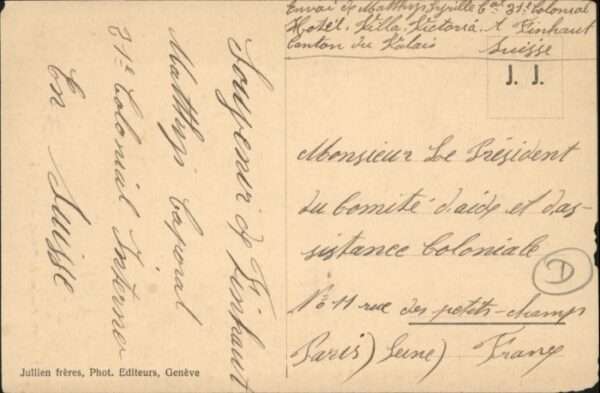 Envoi de Matthys Cyrille Cal 31e Colonial
Hôtel. Villa. Victoria. A Finhaut
Canton du Valais Suisse
J. J.
Souvenir de Finhaut
Matthys Caporal
31e Colonial Interné
En Suisse
Monsieur Le Président
du Comité d'aide et d'as-
sistance Coloniale
No 11 rue des petits-champs
Paris) Seine) France
D
Jullien frères, Phot. Editeurs, Genève